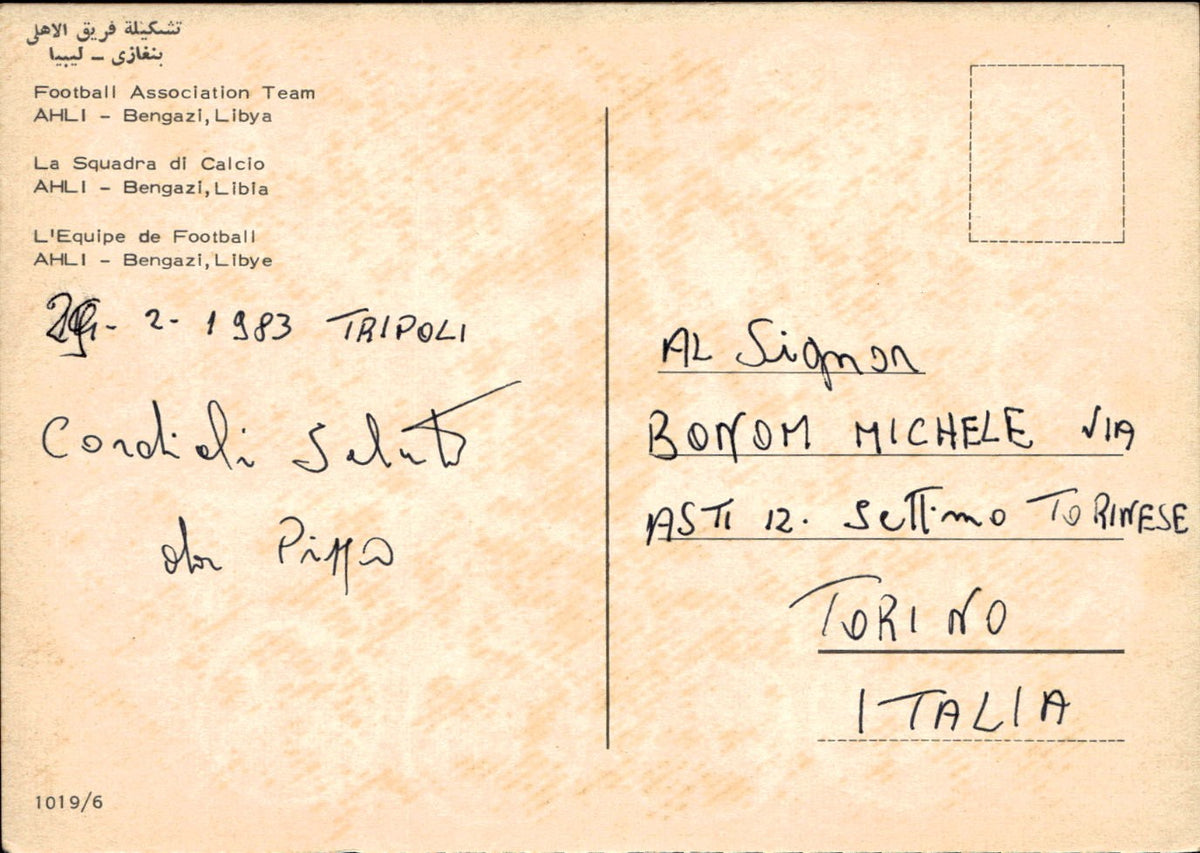 تشكيلة فريق الاهلى
بنغازى - ليبيا
Football Association Team
AHLI - Bengazi, Libya
La Squadra di Calcio
AHLI - Bengazi, Libia
L'Equipe de Football
AHLI - Bengazi, Libye
- 2 - 1983 TRIPOLI
Cordiali Saluti
da
1019/6
AL Signor
BONOM MICHELE VIA
ASTI 12. Settimo TORINESE
TORINO
ITALIA